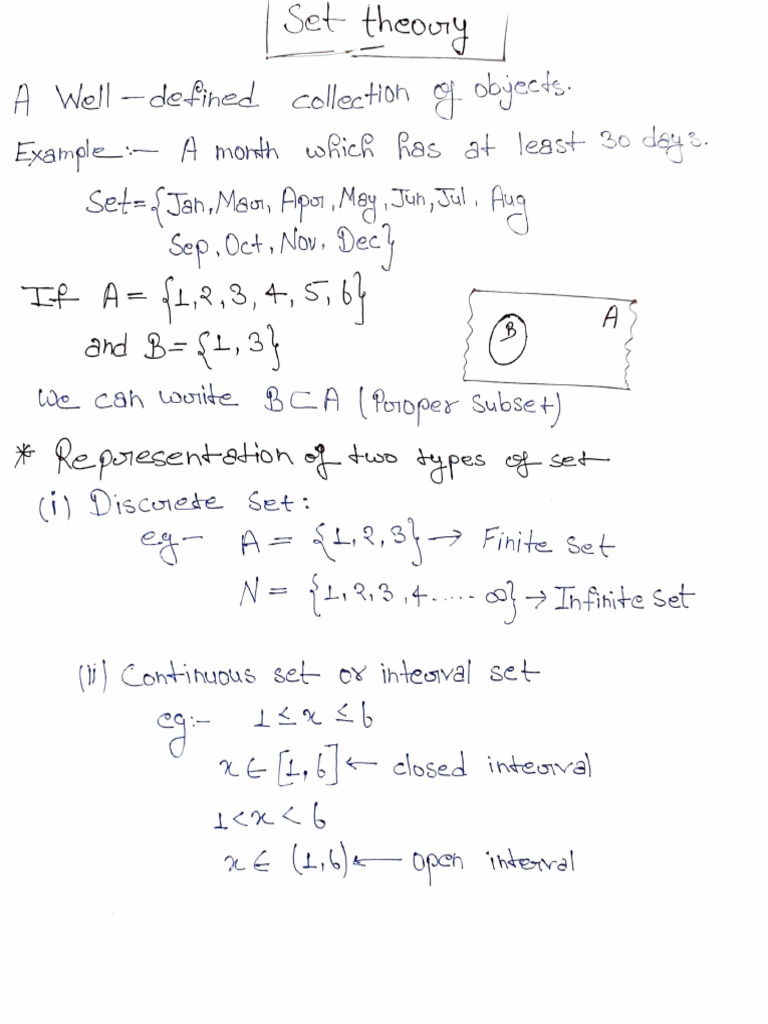 Set theory
A Well-defined collection of objects.
Example:- A month which has at least 30 days.
Set={Jan, Mar, Apr, May, Jun, Jul, Aug
Sep, Oct, Nov, Dec}
If A = {1,2,3,4,5,6}
and B={1,3}
B A
We can write B⊂A (Proper subset)
* Representation of two types of set
(i) Discrete set:
eg- A = {1,2,3} → Finite set
N = {1,2,3,4..... ∞} → Infinite set
(ii) Continuous set or interval set
eg:- 1 ≤ x ≤ 6
x ∈ [1,6] ← closed interval
1 < x < 6
x ∈ (1,6) ← open interval